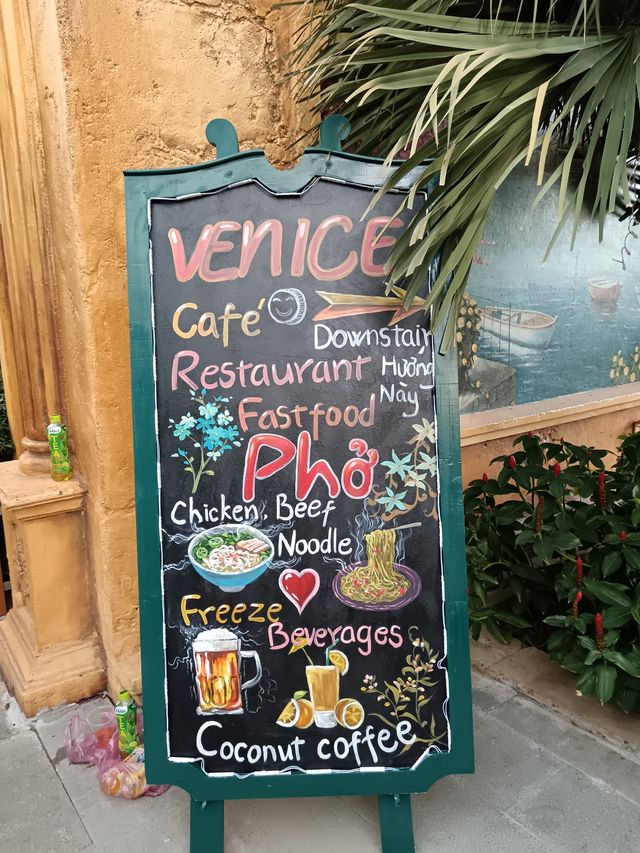 VENICE
Café
Downstair
Restaurant
Hướng
Này
Fastfood
Phở
Chicken, Beef
Noodle
Freeze
Beverages
Coconut coffee
TEA